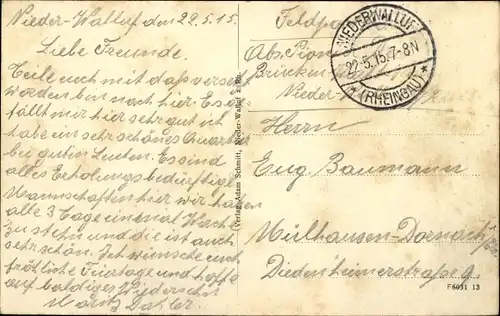 Nieder-Walluf den 22.5.15.
Liebe Freunde.
Teile euch mit dass versetzt
worden bin nach hier. Es ge
fällt mir hier sehr gut ich
habe ein sehr schönes Quartier
bei guten Leuten. Es sind
alles Erholungsbedürftige
Mannschaften hier wir haben
alle 3 Tage einmal Wach
zu stehn und die ist auch
sehr schön. Ich wünsche euch
fröhliche Feiertage und hoffe
auf baldiges Wiedersehn
Moritz Dahler.
(Verlag Adam Schmitt, Nieder-Walluf a. Rh.)
Feldpost
Abs. Pion
Brücken
Nieder-
NIEDERWALLUF
22.5.15.7-8N
* (RHEINGAU) *
Herrn
Eug. Baumann
Mülhausen-Dornach
Diedenheimerstraße 9.
F6031 13